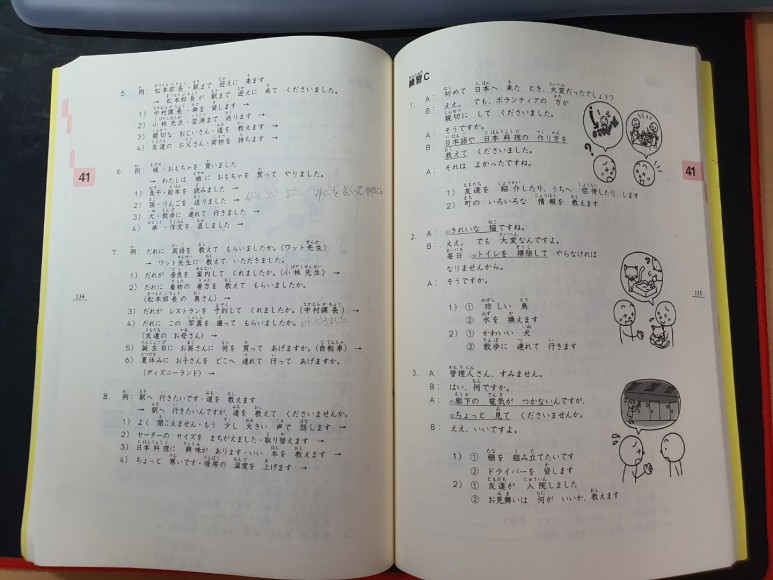 5. 例：松本部長・駅まで 迎えに 来ます
→ 松本部長が 駅まで 迎えに 来て くださいました。
1) 中村課長・傘を 貸します →
2) 小林先生・空港まで 送ります →
3) 親切な おじいさん・道を 教えます →
4) 友達の お父さん・荷物を 持ちます →
6. 例：娘・おもちゃを 買いました
→ わたしは 娘に おもちゃを 買って やりました。
1) 息子・絵本を 読みました →
2) 孫・りんごを 送りました →
3) 犬・散歩に 連れて 行きました →
4) 弟・作文を 直しました →
7. 例：だれに 英語を 教えて もらいましたか。(ワット先生)
→ ワット先生に 教えて いただきました。
1) だれが 奈良を 案内して くれましたか。(小林先生) →
2) だれに 着物の 着方を 教えて もらいましたか。
(松本部長の 奥さん) →
3) だれが レストランを 予約して くれましたか。(中村課長) →
4) だれに この 写真を 撮って もらいましたか。
(友達の お母さん) →
5) 誕生日に お孫さんに 何を 買って あげますか。(自転車) →
6) 夏休みに お子さんを どこへ 連れて 行って あげますか。
(ディズニーランド) →
8. 例：駅へ 行きたいです・道を 教えます
→ 駅へ 行きたいんですが、道を 教えて くださいませんか。
1) よく 聞こえません・もう 少し 大きい 声で 話します →
2) セーターの サイズを まちがえました・取り替えます →
3) 日本料理に 興味が あります・いい 本を 教えます →
4) ちょっと 寒いです・暖房の 温度を 上げます →
41
134
練習C
1. A：初めて 日本へ 来た とき、大変だったでしょう？
B：ええ。でも、ボランティアの 方が
親切に して くださいました。
A：そうですか。
B：日本語や 日本料理の 作り方を
教えて くださいました。
A：それは よかったですね。
1) 友達を 紹介したり、うちへ 招待したり します
2) 町の いろいろな 情報を 教えます
2. A：①きれいな 猫ですね。
B：ええ。でも 大変なんですよ。
毎日 ②トイレを 掃除して やらなければ
なりませんから。
A：そうですか。
1) ① 珍しい 鳥
② 水を 換えます
2) ① かわいい 犬
② 散歩に 連れて 行きます
3. A：管理人さん、すみません。
B：はい、何ですか。
A：①廊下の 電気が つかないんですが、
②ちょっと 見て くださいませんか。
B：ええ、いいですよ。
1) ① 棚を 組み立てたいです
② ドライバーを 貸します
2) ① 友達が 入院しました
② お見舞いは 何が いいか、教えます
41
135